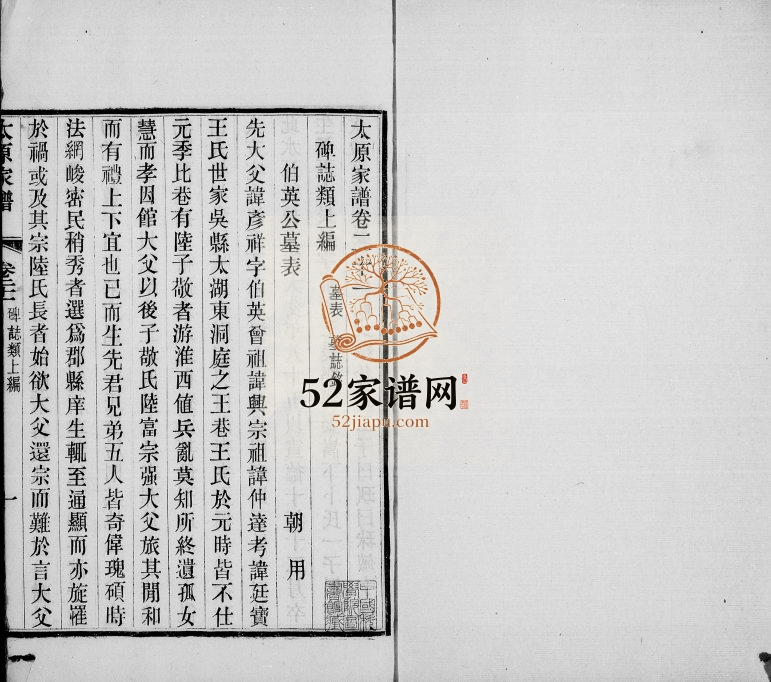 太原家譜卷二
碑誌類上編
墓表 墓誌銘
伯英公墓表 朝用
先大父諱彥祥字伯英曾祖諱興宗祖諱仲達考諱廷寶
王氏世家吳縣太湖東洞庭之王巷王氏於元時皆不仕
元季比巷有陸子敬者游淮西値兵亂莫知所終遺孤女
慧而孝因館大父以後子敬氏陸富宗强大父旅其閒和
而有禮上下宜也已而生先君兄弟五人皆奇偉瑰碩時
法網峻密民稍秀者選爲郡縣庠生輒至通顯而亦旋罹
於禍或及其宗陸氏長者始欲大父還宗而難於言大父
太原家譜 卷二 碑誌類上編 一
52家谱网
52jiapu.com